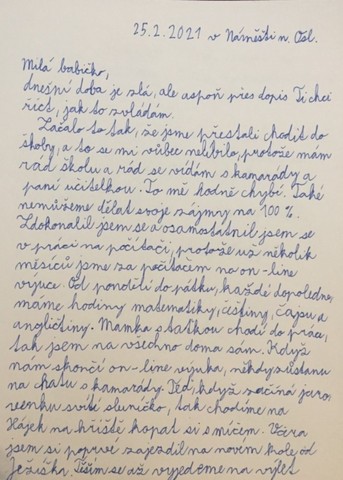 25.2.2021 v Náměšti n. Osl.
Milá babičko,
dnešní doba je zlá, ale aspoň přes dopis Ti chci
říct, jak to zvládám.
Začalo to tak, že jsme přestali chodit do
školy, a to se mi vůbec nelíbilo, protože mám
rád školu a rád se vídám s kamarády a
paní učitelkou. To mě hodně chybí. Také
nemůžeme dělat svoje zájmy na 100 %.
Zdokonalil jsem se a osamostatnil jsem se
v práci na počítači, protože už několik
měsíců jsme za počítačem na on-line
výuce. Od pondělí do pátku, každé dopoledne,
máme hodiny matematiky, češtiny, čapu a
angličtiny. Mamka s taťkou chodí do práce,
tak jsem na všechno doma sám. Když
nám skončí on-line výuka, někdy zůstanu
na chatu s kamarády. Teď, když začíná jaro,
venku svítí sluníčko, tak chodíme na
Hájek na hřiště kopat si s míčem. Včera
jsem si poprvé zajezdil na novém kole od
Ježíška. Těším se až vyjedeme na výlet